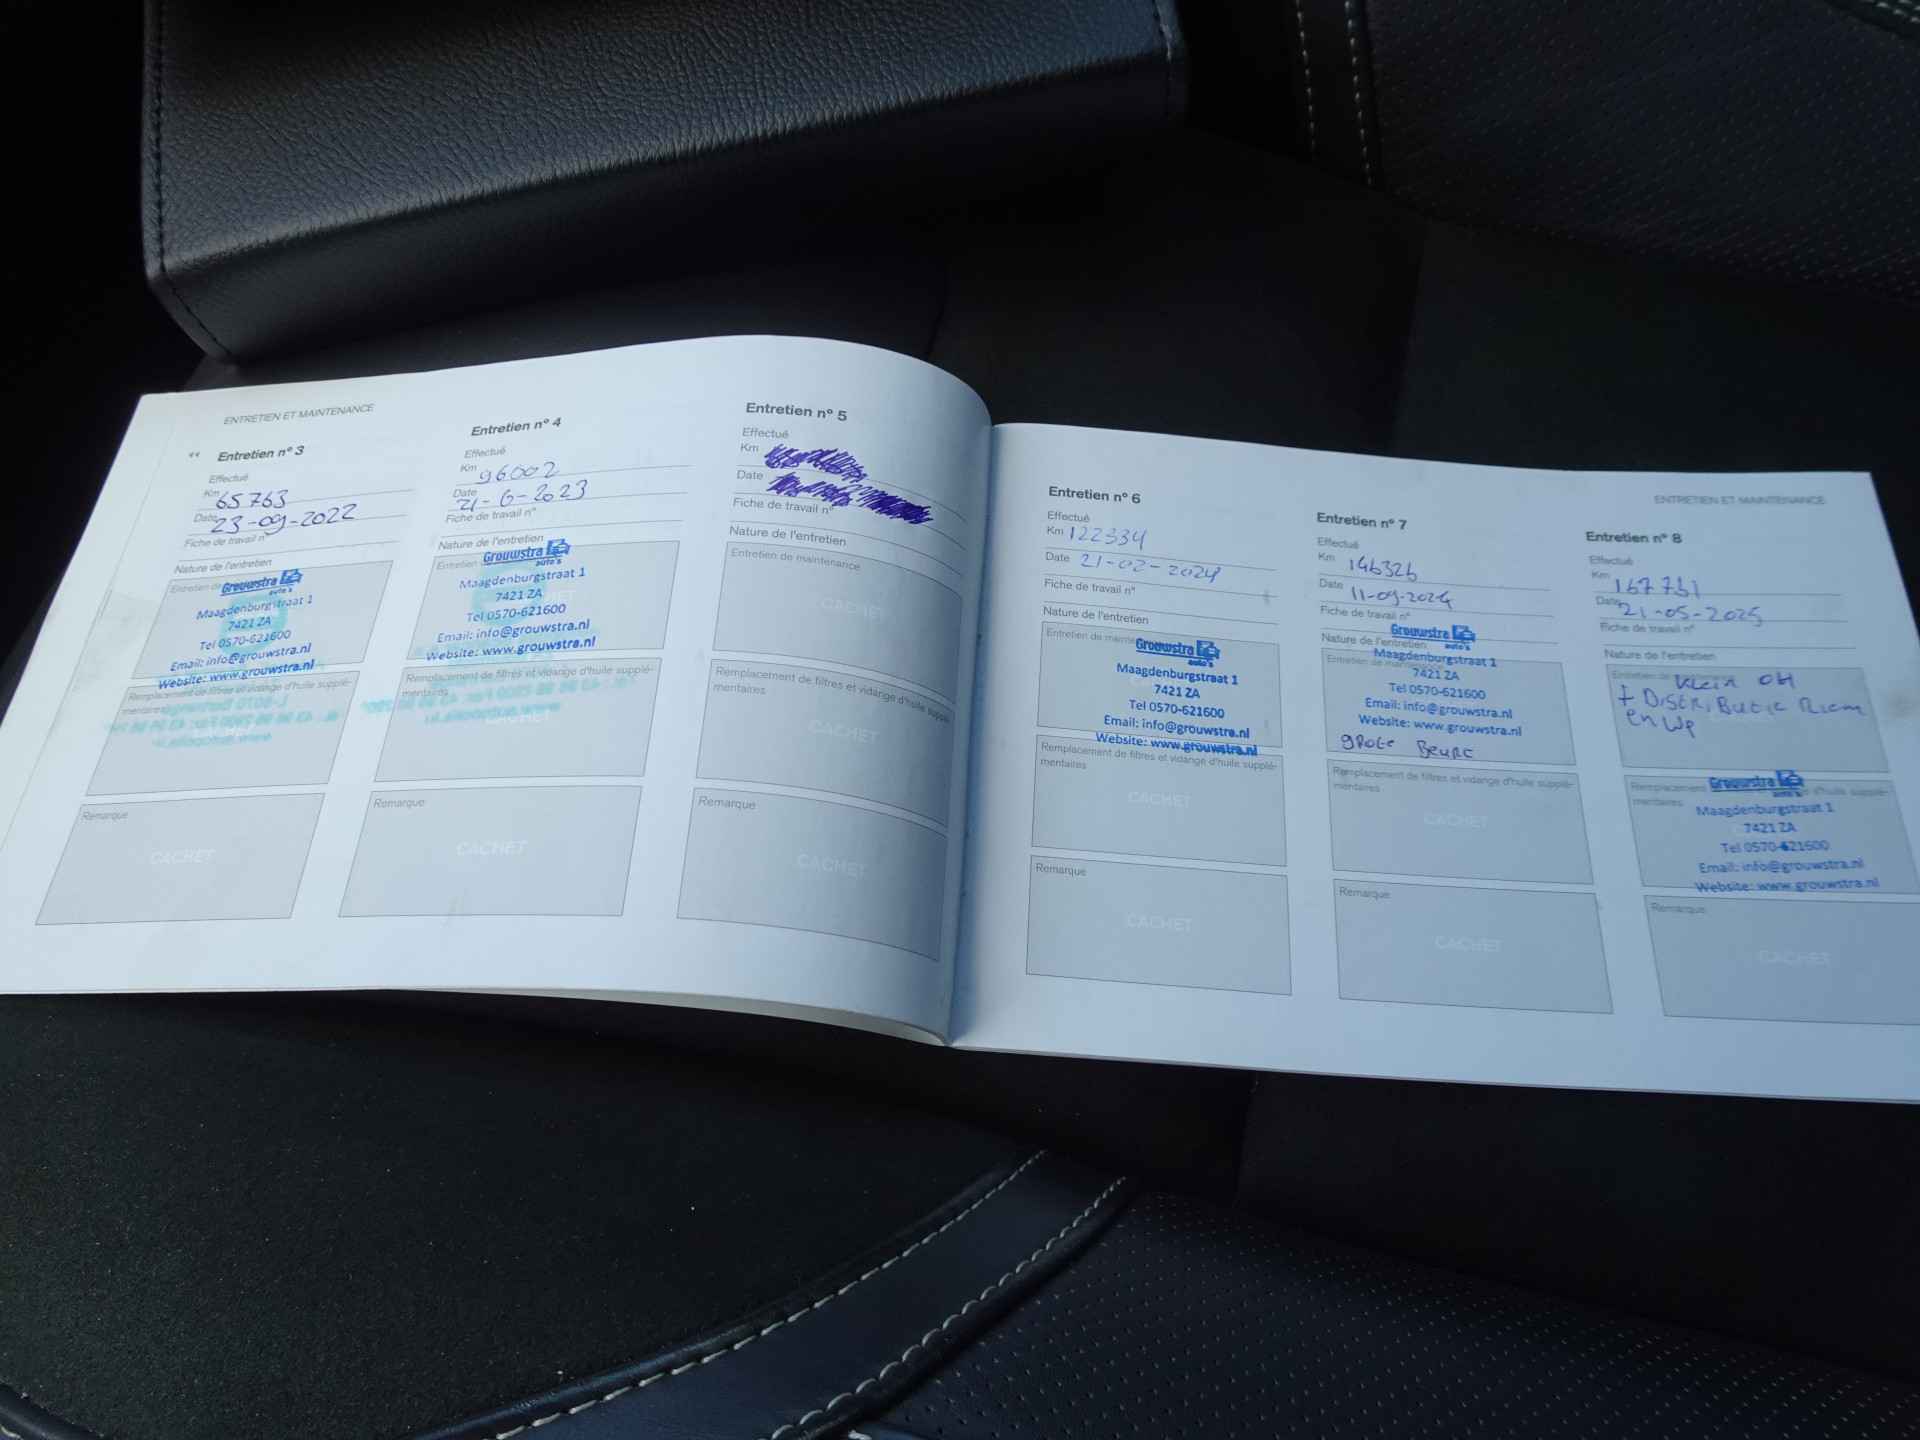 ENTRETIEN ET MAINTENANCE
Entretien nº 3
Effectué
Km 65763
Date 23-09-2022
Fiche de travail nº
Nature de l'entretien
Entretien de
Grouwstra
auto's
Maagdenburgstraat 1
7421 ZA
Tel 0570-621600
Email: info@grouwstra.nl
Website: www.grouwstra.nl
Remplacement de filtres et vidange d'huile supplé-
mentaires
Remarque
CACHET
Entretien nº 4
Effectué
Km 96002
Date 21-6-2023
Fiche de travail nº
Nature de l'entretien
Entretien
Grouwstra
auto's
Maagdenburgstraat 1
7421 ZA
Tel 0570-621600
Email: info@grouwstra.nl
Website: www.grouwstra.nl
Remplacement de filtres et vidange d'huile supplé-
mentaires
CACHET
Remarque
CACHET
Entretien nº 5
Effectué
Km
Date
Fiche de travail nº
Nature de l'entretien
Entretien de maintenance
CACHET
Remplacement de filtres et vidange d'huile supplé-
mentaires
CACHET
Remarque
CACHET
Entretien nº 6
Effectué
Km 122334
Date 21-02-2024
Fiche de travail nº
Nature de l'entretien
Entretien de
Grouwstra
auto's
Maagdenburgstraat 1
7421 ZA
Tel 0570-621600
Email: info@grouwstra.nl
Website: www.grouwstra.nl
Remplacement de filtres et vidange d'huile supplé-
mentaires
CACHET
Remarque
CACHET
ENTRETIEN ET MAINTENANCE
Entretien nº 7
Effectué
Km 146326
Date 11-09-2024
Fiche de travail nº
Nature de l'entretien
Grouwstra
auto's
Entretien de
Maagdenburgstraat 1
7421 ZA
Tel 0570-621600
Email: info@grouwstra.nl
Website: www.grouwstra.nl
grote Beurt
Remplacement de filtres et vidange d'huile supplé-
mentaires
CACHET
Remarque
CACHET
Entretien nº 8
Effectué
Km 167751
Date 21-05-2025
Fiche de travail nº
Nature de l'entretien
Entretien de
Klein OH
+ Distributie Riem
en Wp
Remplacement d'huile supplé-
mentaires
Grouwstra
auto's
Maagdenburgstraat 1
7421 ZA
Tel 0570-621600
Email: info@grouwstra.nl
Website: www.grouwstra.nl
Remarque
CACHET